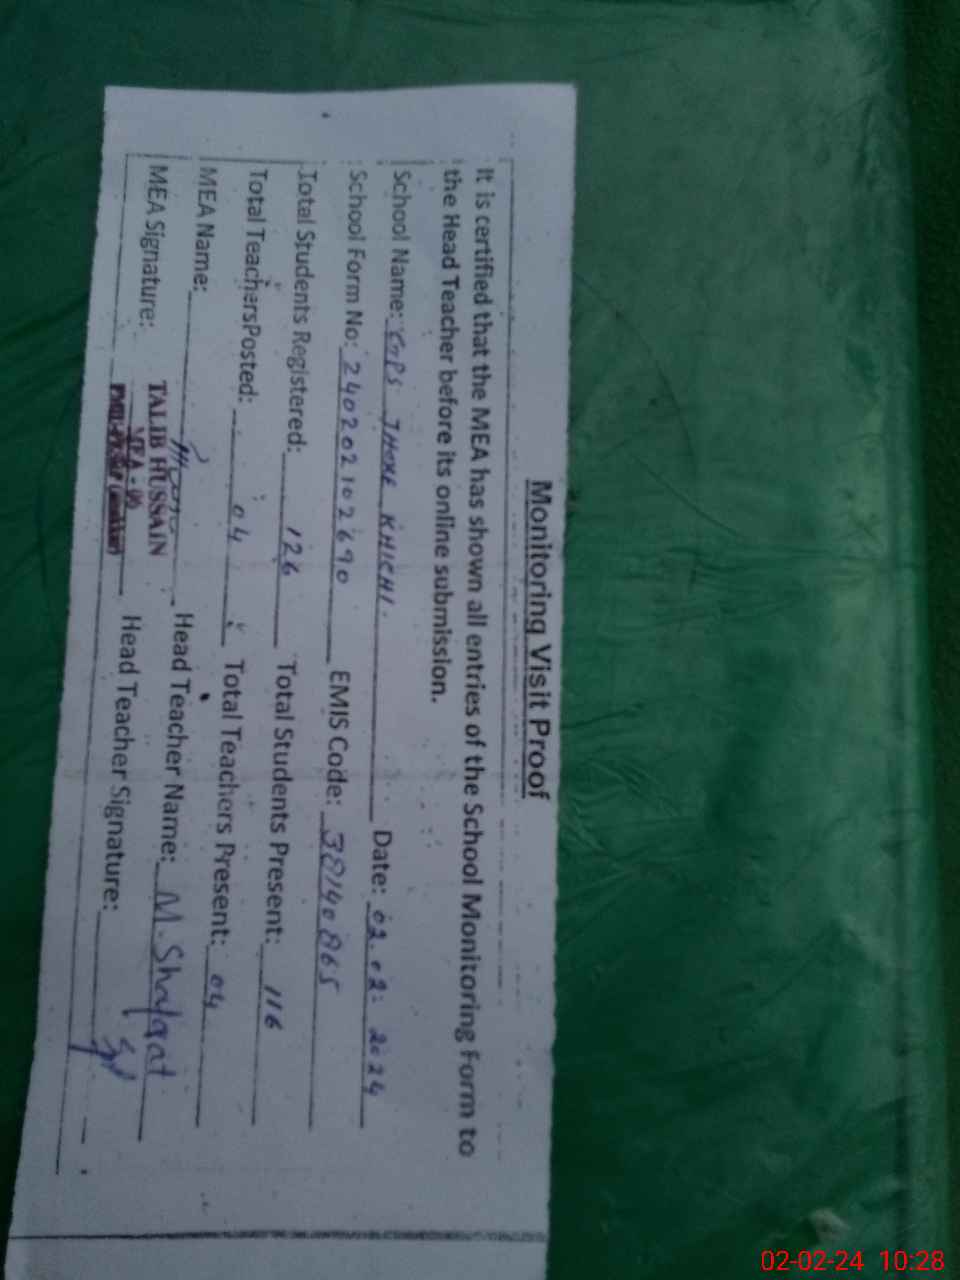 Monitoring Visit Proof
It is certified that the MEA has shown all entries of the School Monitoring Form to
the Head Teacher before its online submission.
School Name: GPS JHOKE KHICHI. Date: 02.02.2024
School Form No: 240202102690 EMIS Code: 38140865
Total Students Registered: 126 Total Students Present: 116
Total TeachersPosted: 04 Total Teachers Present: 04
MEA Name: Head Teacher Name: M. Shafqat
TALIB HUSSAIN
MEA Signature: Head Teacher Signature:
02-02-24 10:28